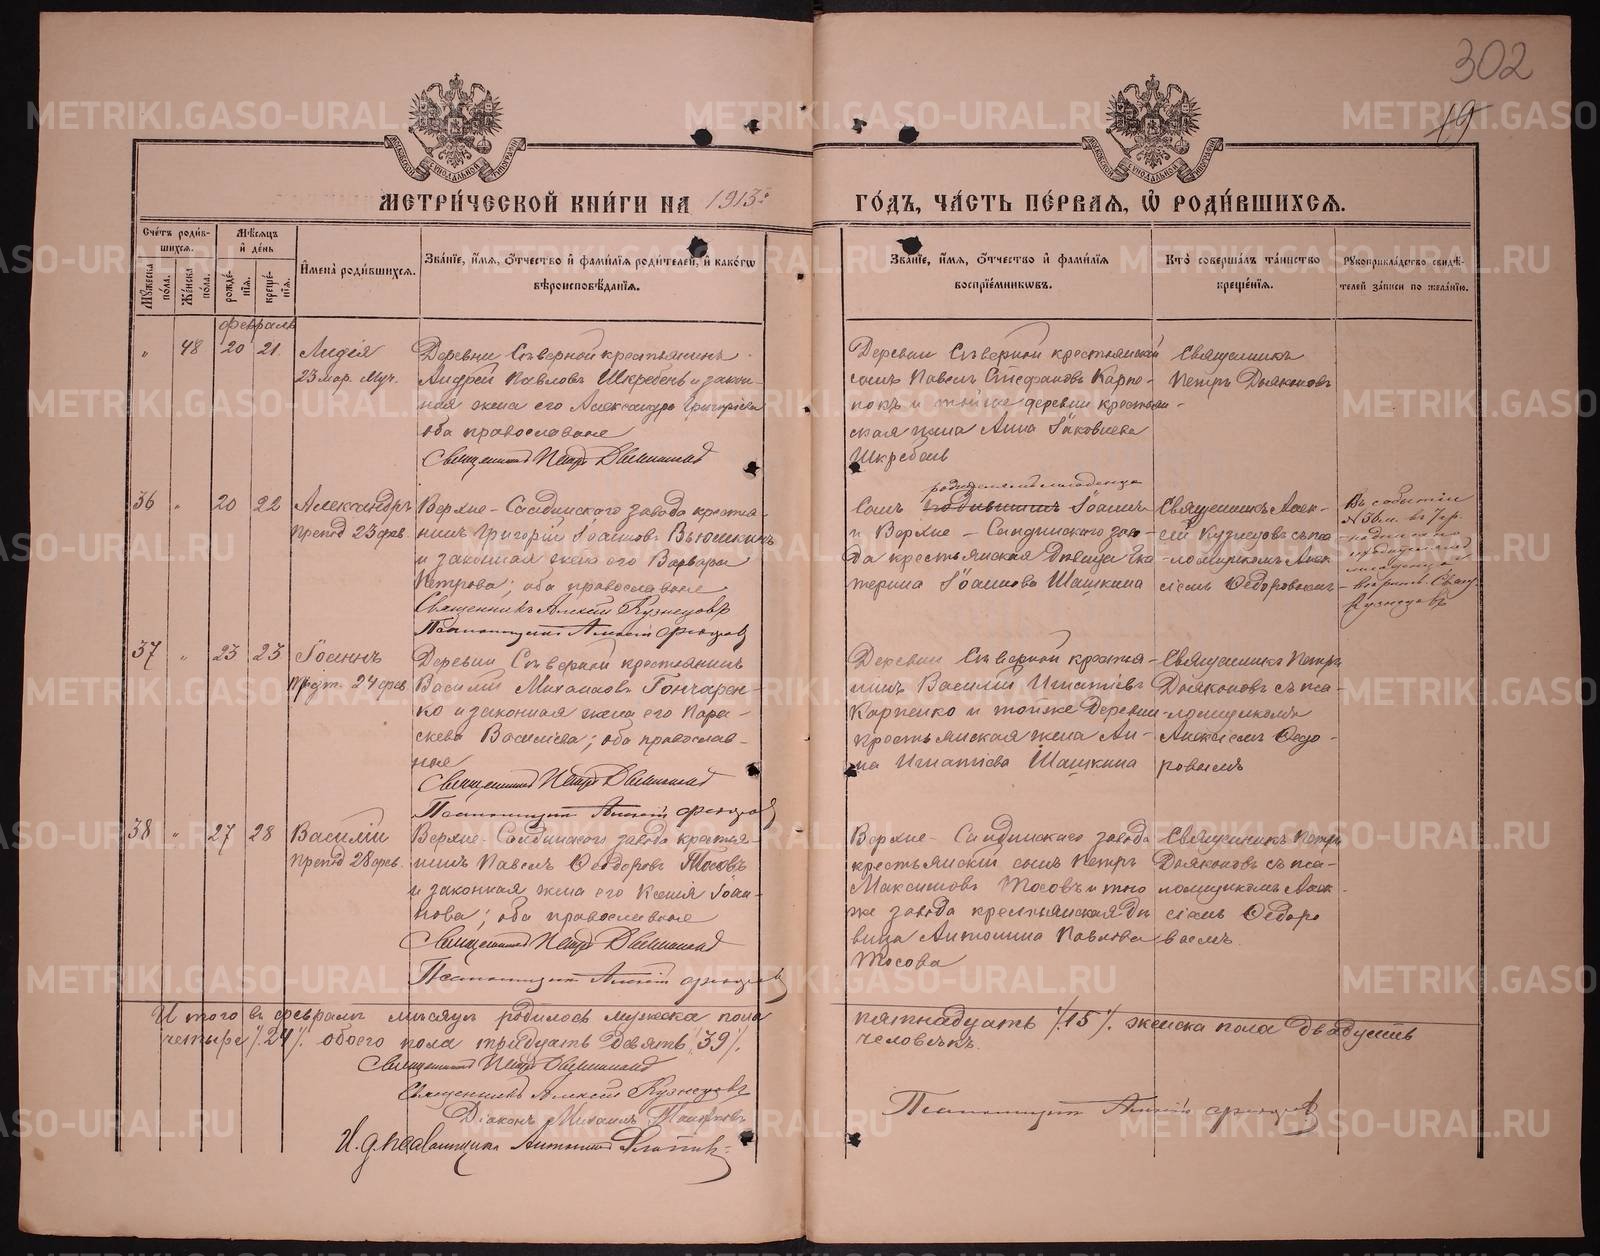 302
19
МЕТРИ́ЧЕСКОЙ КНИ́ГИ НА 1913 г.
ГО́ДЪ, ЧА́СТЬ ПЕ́РВАЯ, Ѡ РОДИ́ВШИХСЯ.
Сче́тъ роди́вшихся.
Му́жеска по́ла.
Же́нска по́ла.
Мѣ́сяцъ и де́нь
рожде́нїя.
креще́нїя.
Имена̀ роди́вшихся.
Зва́нїе, и́мя, о́тчество и фами́лїя роди́телей, и како́гѡ вѣроисповѣ́данїя.
Зва́нїе, и́мя, о́тчество и фами́лїя воспрїе́мникѡвъ.
Кто̀ соверша́лъ та́инство креще́нїя.
Рукоприкла́дство свидѣ́телей за́писи по жела́нїю.
февраль
" 48 20 21
Лидія
23 мар. муч.
Деревни Сѣверной крестьянинъ
Андрей Павловъ Шкребень и закон-
ная жена его Александра Григорьева
оба православные
Священникъ Петръ Дьяконовъ
Деревни Сѣверной крестьянскій
сынъ Павелъ Стефановъ Карпе-
нокъ и тойже деревни крестьян-
ская жена Анна Іаковлева
Шкребень
Священникъ
Петръ Дьяконовъ
36 " 20 22
Александръ
препод. 23 фев.
Верхне-Салдинскаго завода крестья-
нинъ Григорій Іоанновъ Вьюшкинъ
и законная жена его Варвара
Петрова; оба православные
Священникъ Алексій Кузнецовъ
Псаломщикъ Алексій
родителя младенца
Сынъ Іоаннъ
и Верхне-Салдинскаго заво-
да крестьянская дѣвица Ека-
терина Іоаннова Шашкина
Священникъ Алек-
сій Кузнецовъ съ пса-
ломщикомъ Алек-
сіемъ Ѳедоровымъ
Въ событіи
№ 36 м. въ 7 гр.
родителя
младенца
вѣрить. Свящ.
Кузнецовъ
37 " 23 23
Іоаннъ
Прдт. 24 фев.
Деревни Сѣверной крестьянинъ
Василій Михаиловъ Гончарен-
ко и законная жена его Пара-
скева Васильева; оба православ-
ные
Священникъ Петръ Дьяконовъ
Псаломщикъ Алексій
Деревни Сѣверной крестья-
нинъ Василій Игнатіевъ
Карпенко и тойже деревни
крестьянская жена Ан-
на Игнатіева Шашкина
Священникъ Петръ
Дьяконовъ съ пса-
ломщикомъ
Алексіемъ Ѳедо-
ровымъ
38 " 27 28
Василій
препод. 28 фев.
Верхне-Салдинскаго завода крестья-
нинъ Павелъ Ѳеодоровъ Тосовъ
и законная жена его Ксенія Іоан-
нова; оба православные
Священникъ Петръ Дьяконовъ
Псаломщикъ Алексій
Верхне-Салдинскаго завода
крестьянскій сынъ Петръ
Максимовъ Тосовъ и того
же завода крестьянская дѣ-
вица Антонина Павлова
Тосова
Священникъ Петръ
Дьяконовъ съ пса-
ломщикомъ Алек-
сіемъ Ѳедоро-
вымъ.
Итого въ февралѣ мѣсяцѣ родилось мужеска пола пятнадцать /15/. женска пола двадцать
четыре /24/. обоего пола тридцать девять /39/. человѣкъ.
Священникъ Петръ Дьяконовъ
Священникъ Алексій Кузнецовъ
Діаконъ Михаилъ
Псаломщикъ Алексій
И. д. псаломщика Антоній
METRIKI.GASO-URAL.RU